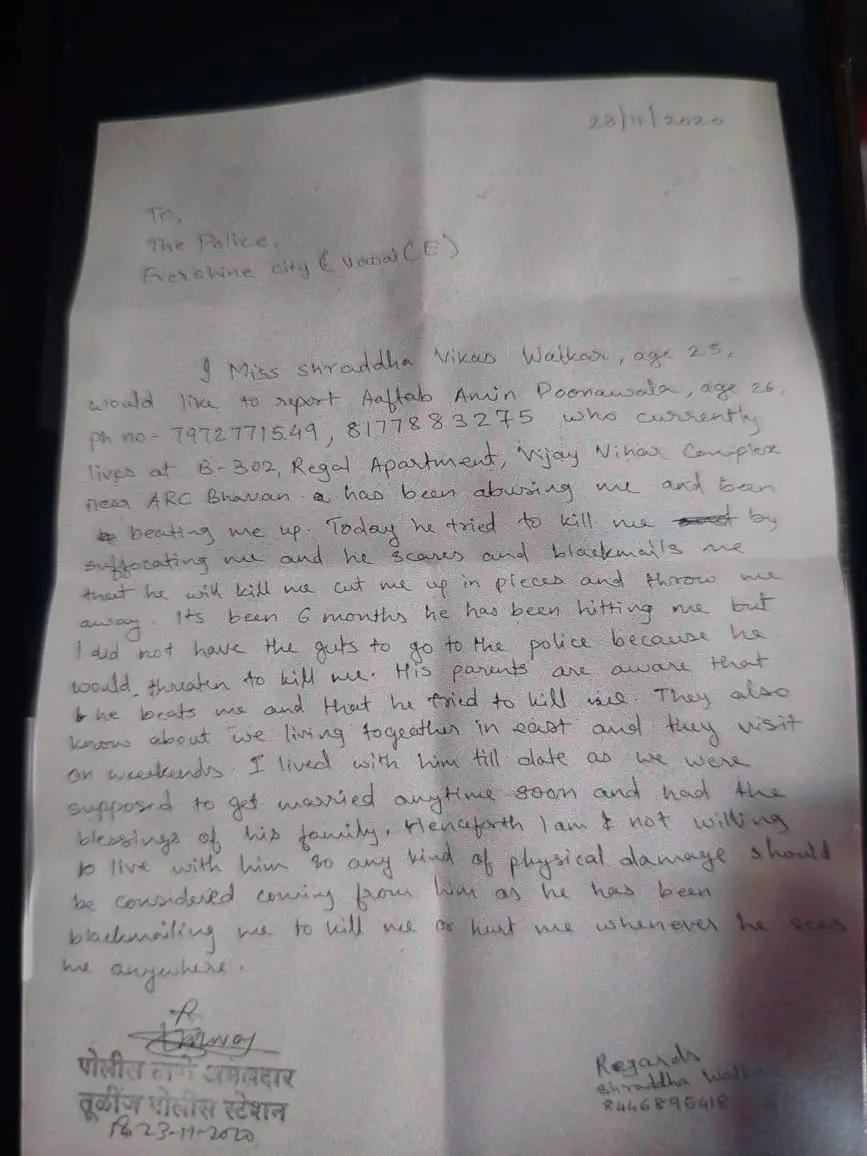 23/11/2020
To,
The Police,
Evershine city (Vasai (E)
I Miss Shraddha Vikas Walkar, age 25,
would like to report Aaftab Amin Poonawala, age 26,
ph no- 7972771549, 8177883275 who currently
lives at B-302, Regal Apartment, Vijay Vihar Complex
near ARC Bhavan. has been abusing me and been
beating me up. Today he tried to kill me by
suffocating me and he scares and blackmails me
that he will kill me cut me up in pieces and throw me
away. Its been 6 months he has been hitting me but
I did not have the guts to go to the police because he
would threaten to kill me. His parents are aware that
he beats me and that he tried to kill me. They also
know about we living togeather in east and they visit
on weekends. I lived with him till date as we were
supposed to get married anytime soon and had the
blessings of his family. Henceforth I am not willing
to live with him so any kind of physical damage should
be considered coming from him as he has been
blackmailing me to kill me or hurt me whenever he sees
me anywhere.
पोलीस ठाणे अंमलदार
तूळींज पोलीस स्टेशन
23-11-2020
Regards
Shraddha Walkar
8446895418